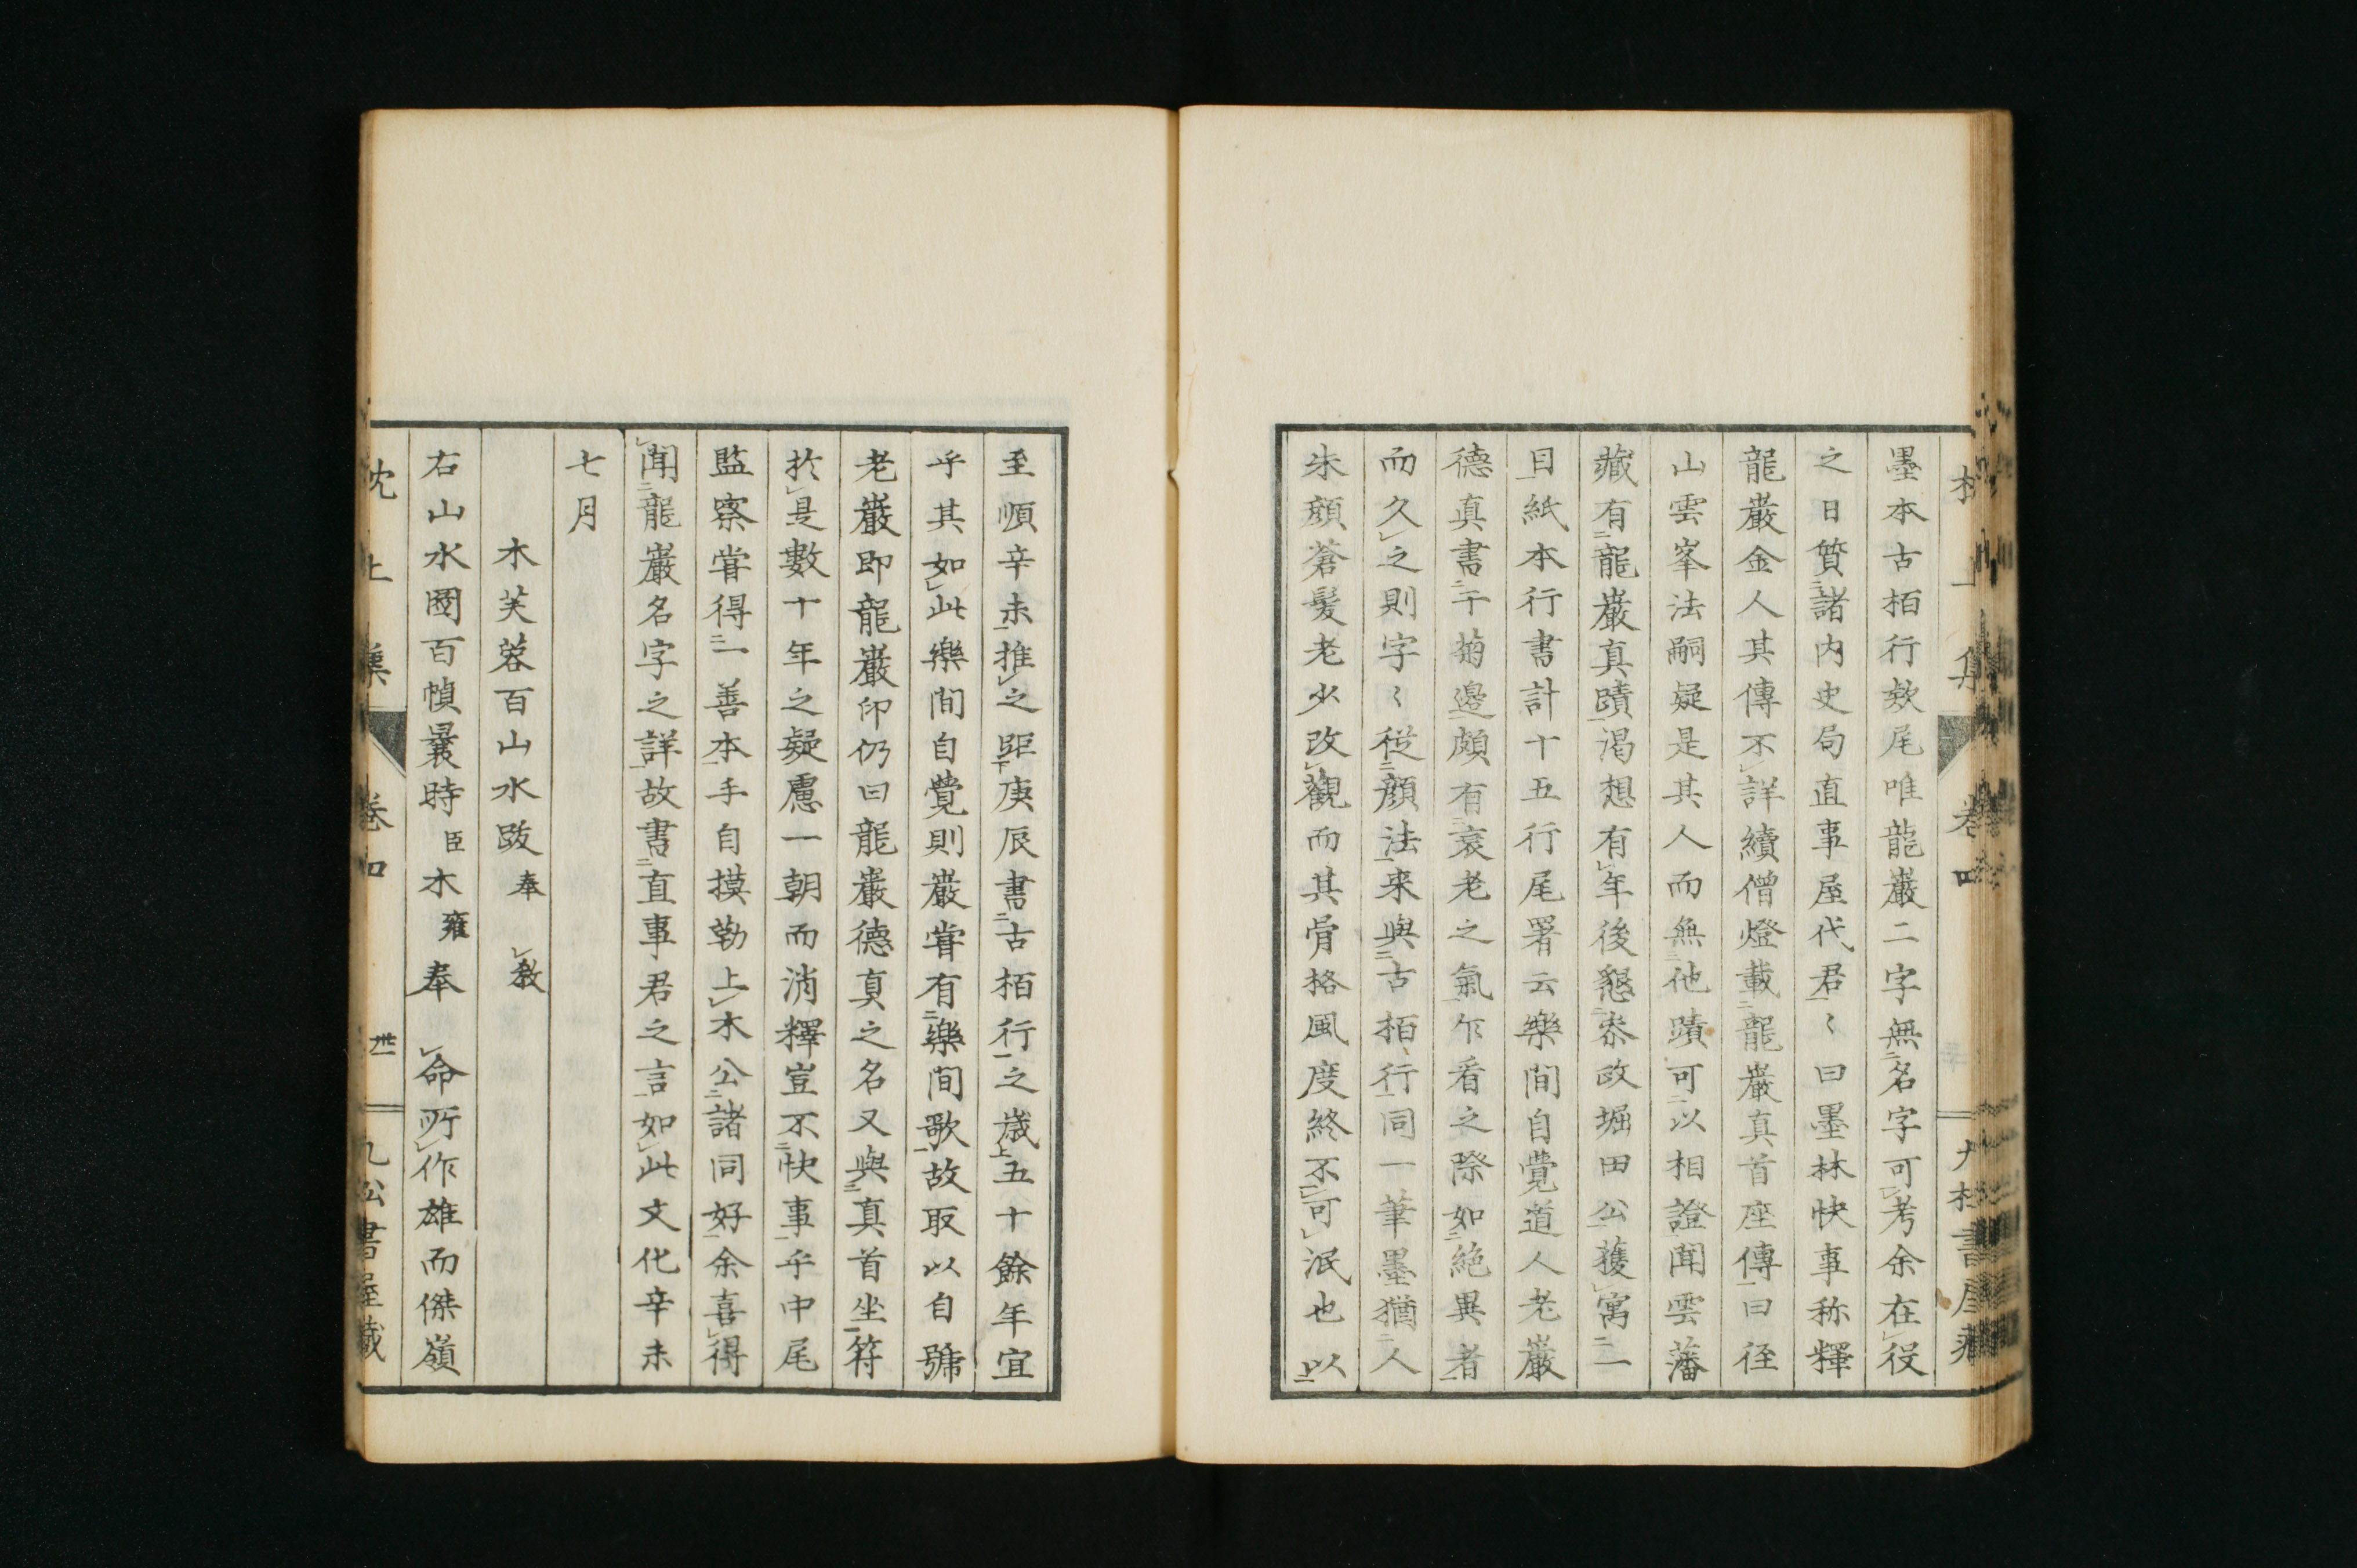 墨本古栢行欵尾唯龍巖二字無名字可考余在役
之日質諸内史局直事屋代君〻曰墨林快事称釋
龍巖金人其傳不詳續僧燈載龍巖真首座傳曰徑
山雲峯法嗣疑是其人而無他蹟可以相證聞雲藩
藏有龍巖真蹟渇想有年後懇叅政堀田公獲寓一
目紙本行書計十五行尾署云樂間自覺道人老巖
德真書于菊邊頗有衰老之氣乍看之際如絶異者
而久之則字〻從顔法来與古栢行同一筆墨猶人
朱顔蒼髮老少改觀而其骨格風度終不可泯也以
至順辛未推之距庚辰書古栢行之歳五十餘年宜
乎其如此樂間自覺則巖甞有樂間歌故取以自號
老巖即龍巖印仍曰龍巖德真之名又與真首坐符
於是數十年之疑慮一朝而消釋豈不快事乎中尾
監察甞得一善本手自摸勒上木公諸同好余喜得
聞龍巖名字之詳故書直事君之言如此文化辛未
七月
木芙蓉百山水跋奉教
右山水圖百幀曩時臣木雍奉命所作雄而傑嶺